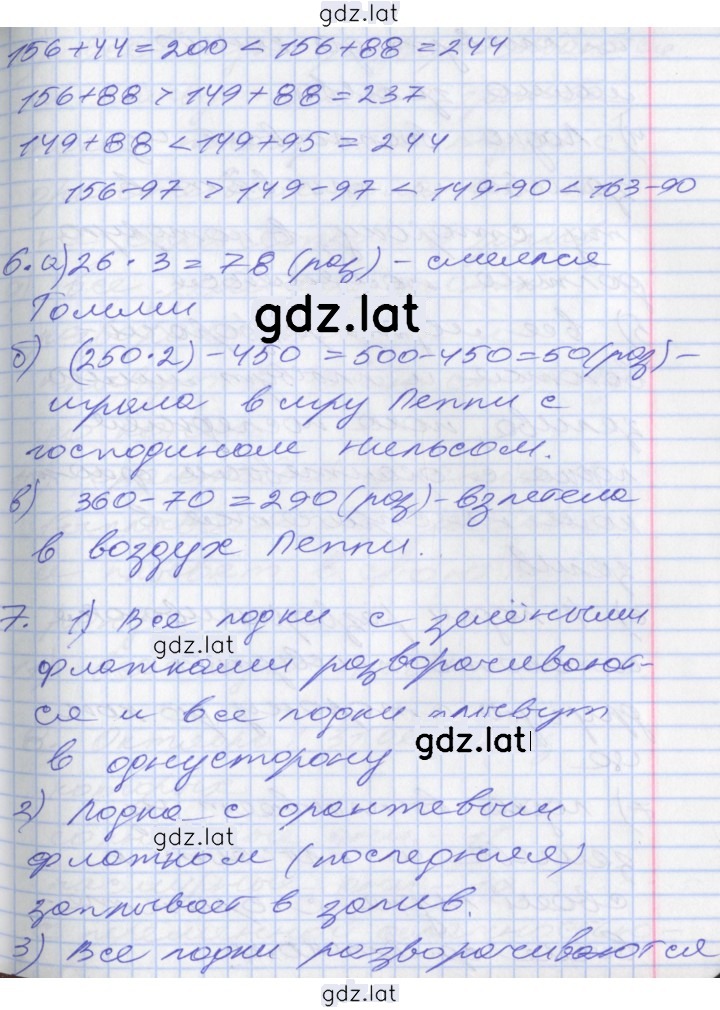 gdz.lat
156+44=200 < 156+88=244
156+88 > 149+88=237
149+88 < 149+95 = 244
156-97 > 149-97 < 149-90 < 163-90
6. а) 26 · 3 = 78 (раз) - смеялся
Томми
gdz.lat
б) (250·2) - 450 = 500-450=50 (раз) -
играла в игру Пеппи с
господином Нильсом.
в) 360-70=290 (раз) - взлетела
в воздух Пеппи.
7. 1) Все лодки с зелёными
gdz.lat
флажками разворачивают-
ся и все лодки плывут
в однусторону
gdz.lat
2) Лодка с оранжевым
gdz.lat
флажком (последняя)
заплывает в залив.
3) Все лодки разворачиваются
gdz.lat